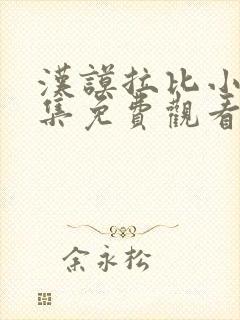 漢謨拉比小
集免費觀看
余永松